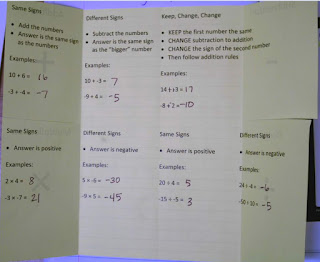 Same Signs
• Add the numbers
• Answer is the same sign
as the numbers
Examples:
10 + 6 = 16
-3 + -4 = -7
Different Signs
• Subtract the numbers
• Answer is the same sign
as the "bigger" number
Examples:
10 + -3 = 7
-9 + 4 = -5
Keep, Change, Change
• KEEP the first number the same
• CHANGE subtraction to addition
• CHANGE the sign of the second number
• Then follow addition rules
Examples:
14 + +3 = 17
-8 + -2 = -10
Same Signs
• Answer is positive
Examples:
2 × 4 = 8
-3 × -7 = 21
Different Signs
• Answer is negative
Examples:
5 × -6 = -30
-9 × 5 = -45
Same Signs
• Answer is positive
Examples:
20 ÷ 4 = 5
-15 ÷ -5 = 3
Different Signs
• Answer is negative
Examples:
24 ÷ -4 = -6
-50 ÷ 10 = -5